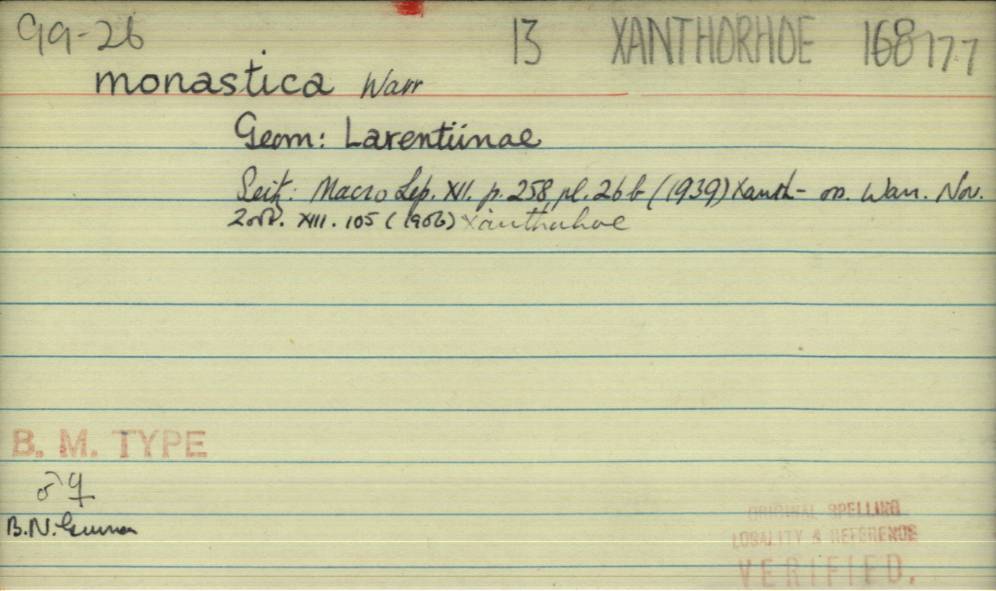 99-26 13 XANTHORHOE 168177
monastica Warr
Geom: Larentiinae
Seitz: Macro Lep. XII. p. 258, pl. 26 b (1939) Xanth- Warr. Nov.
Zool. XIII. 105 (1906) Xanthorhoe
B. M. TYPE
♂ ♀
B.N. Guinea
ORIGINAL SPELLING
LOCALITY & REFERENCE
VERIFIED.